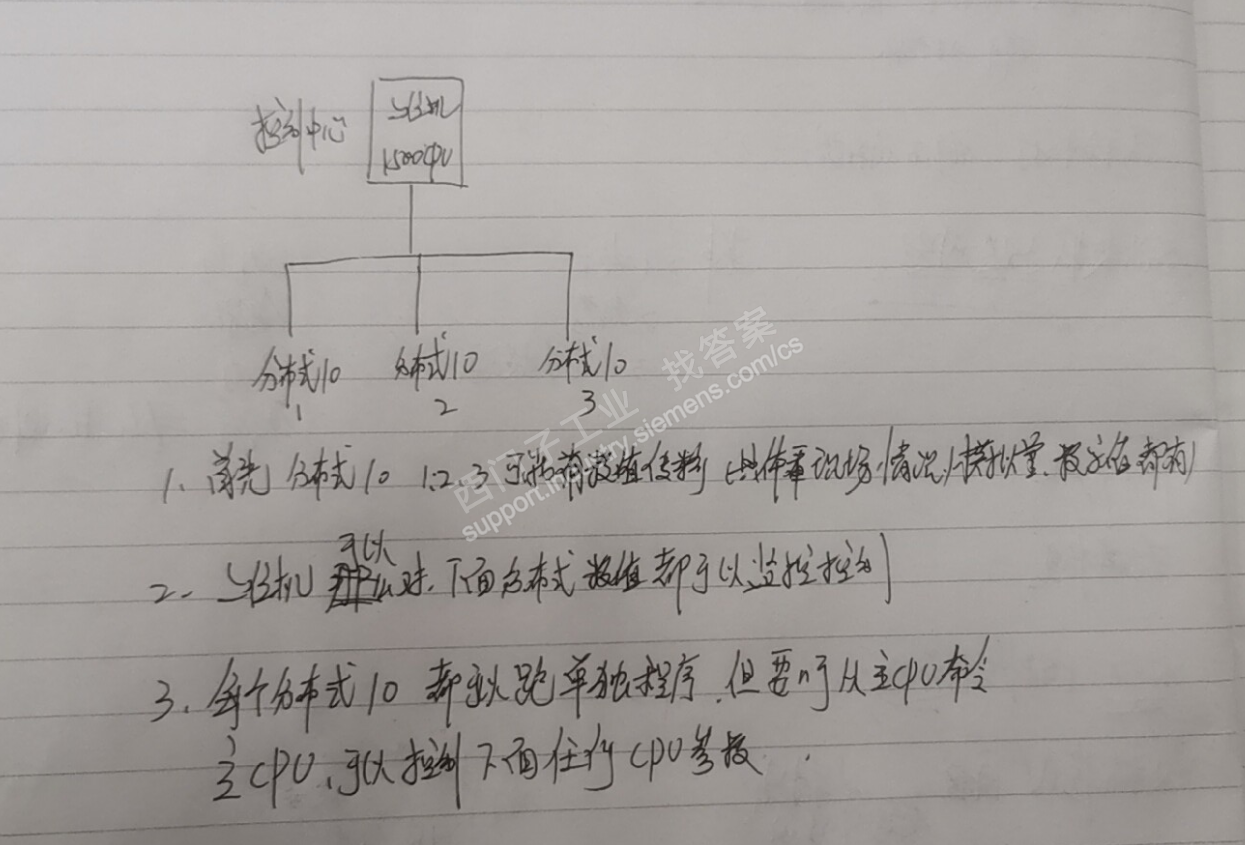 控制中心
上位机
1500CPU
分布式IO 分布式IO 分布式IO
1 2 3
西门子工业 找答案
support.industry.siemens.com/cs
1、首先 分布式IO 1、2、3 可能有数值传输 (具体看现场情况,模拟量、数字值都有)
可以
2、上位机 对、下面分布式 数值都可以监控控制
3、每个分布式IO 都可以跑单独程序,但要听从主CPU命令
主CPU、可以控制下面任何CPU参数.